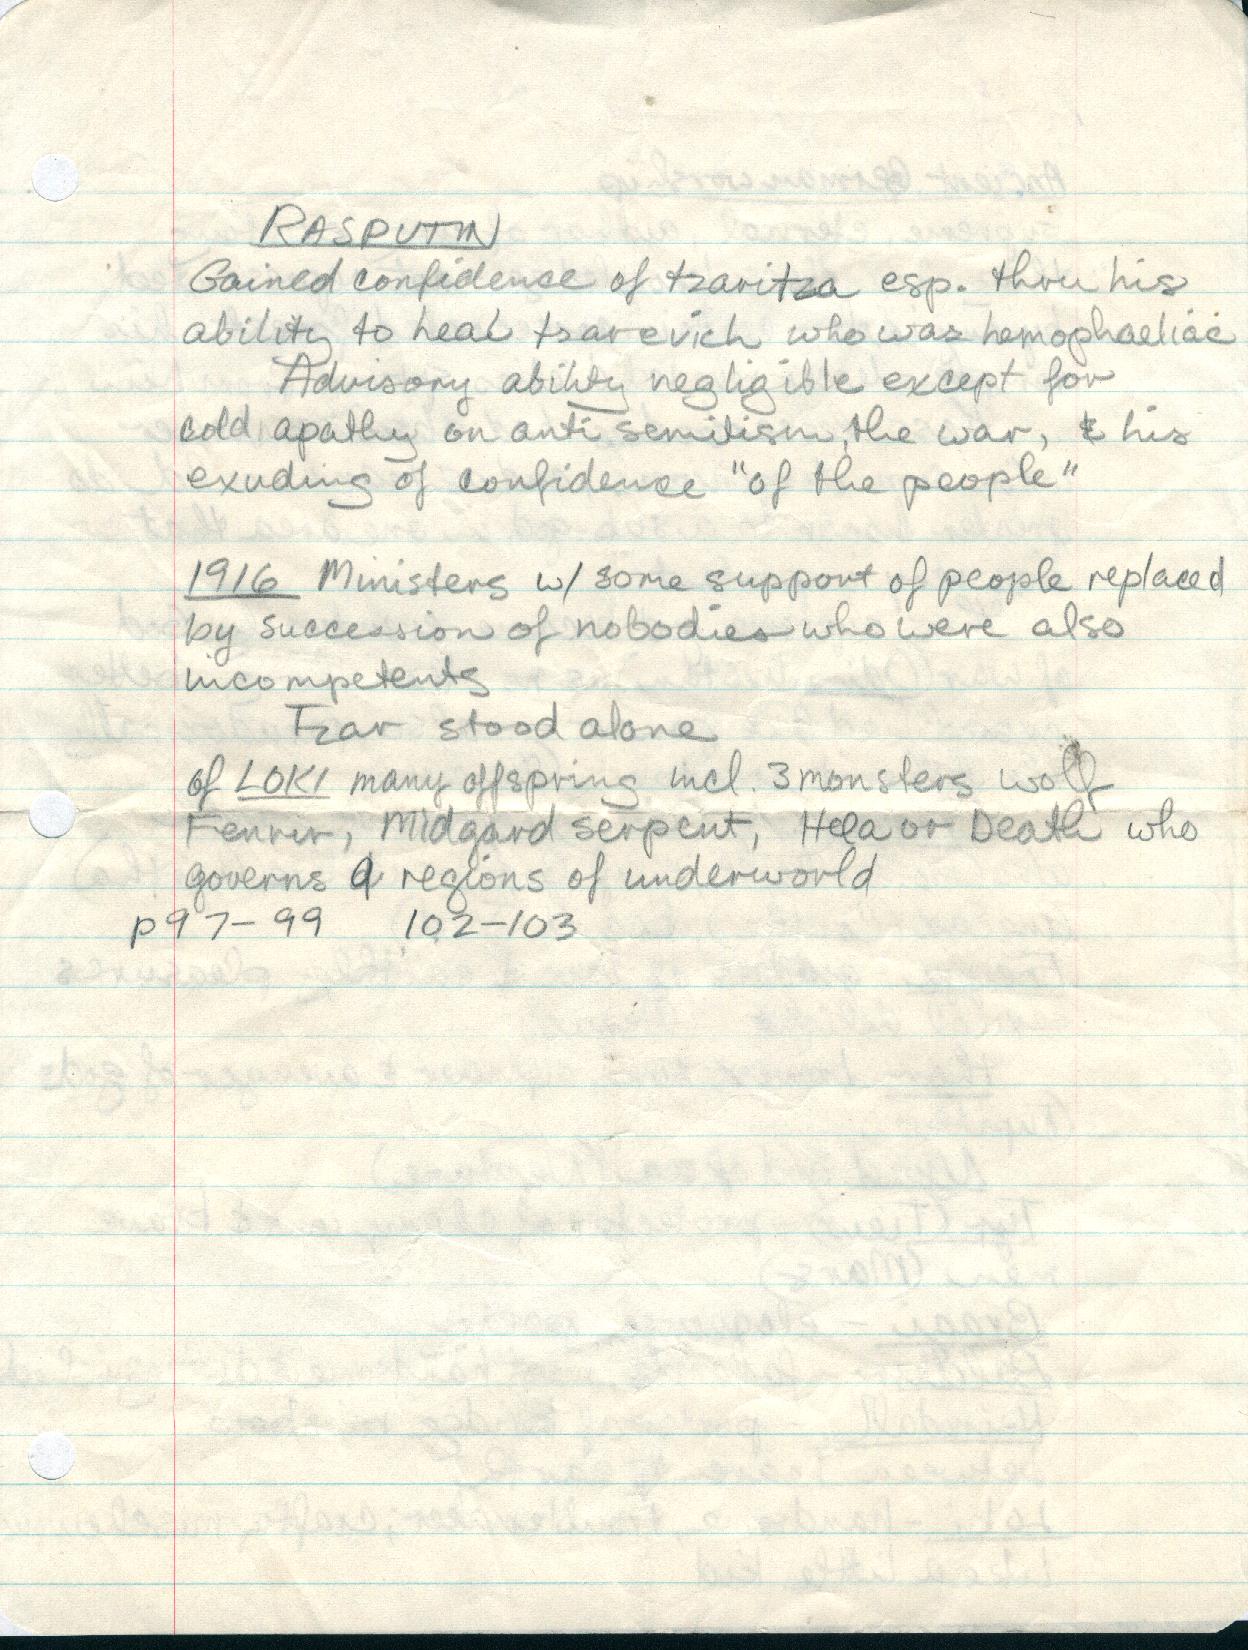 RASPUTIN
Gained confidence of tzaritza esp. thru his
ability to heal tsarevich who was hemophaeliac
Advisory ability negligible except for
cold apathy on anti semitism, the war, & his
exuding of confidence "of the people"
1916 Ministers w/ some support of people replaced
by succession of nobodies who were also
incompetents
Tzar stood alone
of LOKI many offspring incl. 3 monsters wolf
Fenrir, Midgard serpent, Hela or Death who
governs 9 regions of underworld
p97-99 102-103